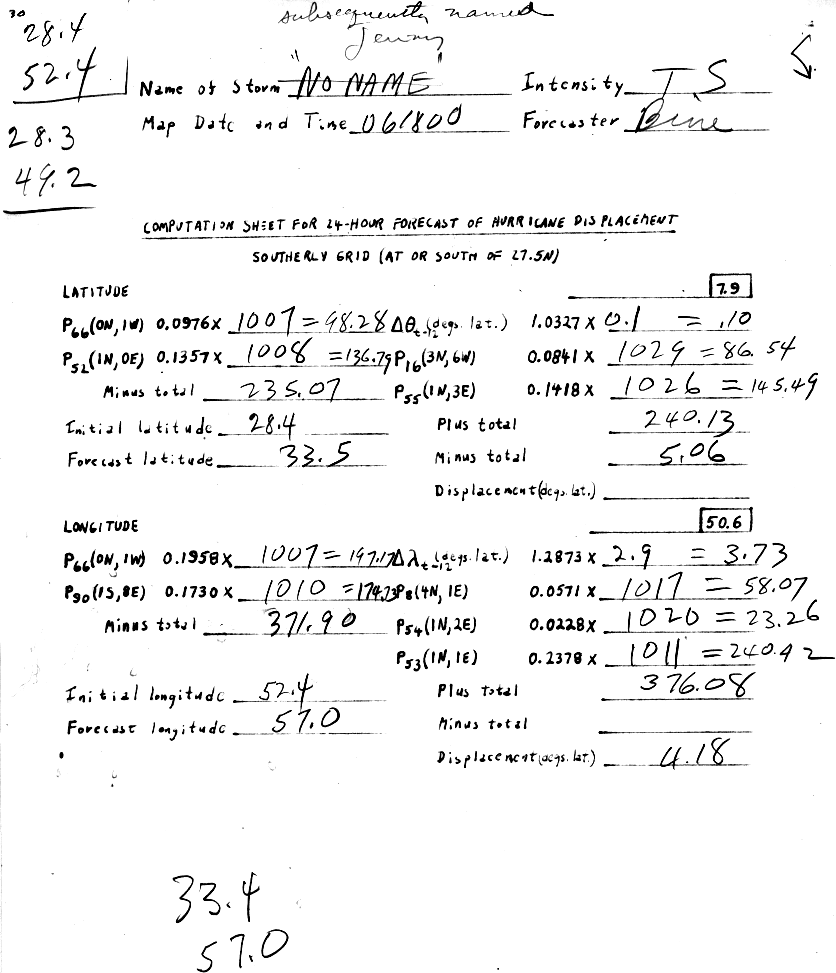 30
28.4
52.4
28.3
49.2
subsequently named
Jenny
Name of Storm "NO NAME" Intensity TS
Map Date and Time 061800 Forecaster
COMPUTATION SHEET FOR 24-HOUR FORECAST OF HURRICANE DISPLACEMENT
SOUTHERLY GRID (AT OR SOUTH OF 27.5N)
LATITUDE 7.9
P66(0N,1W) 0.0976X 1007 = 98.28 Δθt-12 (degs. lat.) 1.0327 X 0.1 = .10
P52(1N,0E) 0.1357X 1008 = 136.79 P16(3N,6W) 0.0841 X 1029 = 86.54
Minus total 235.07 P55(1N,3E) 0.1418 X 1026 = 145.49
Initial latitude 28.4 Plus total 240.13
Forecast latitude 33.5 Minus total 5.06
Displacement (degs. lat.)
LONGITUDE 50.6
P66(0N,1W) 0.1958X 1007 = 197.17 Δλt-12 (degs. lat.) 1.2873 X 2.9 = 3.73
P90(1S,8E) 0.1730X 1010 = 174.73 P8(4N,1E) 0.0571 X 1017 = 58.07
Minus total 371.90 P54(1N,2E) 0.0228X 1020 = 23.26
P53(1N,1E) 0.2378 X 1011 = 240.42
Initial longitude 52.4 Plus total 376.08
Forecast longitude 57.0 Minus total
Displacement (degs. lat.) 4.18
33.4
57.0